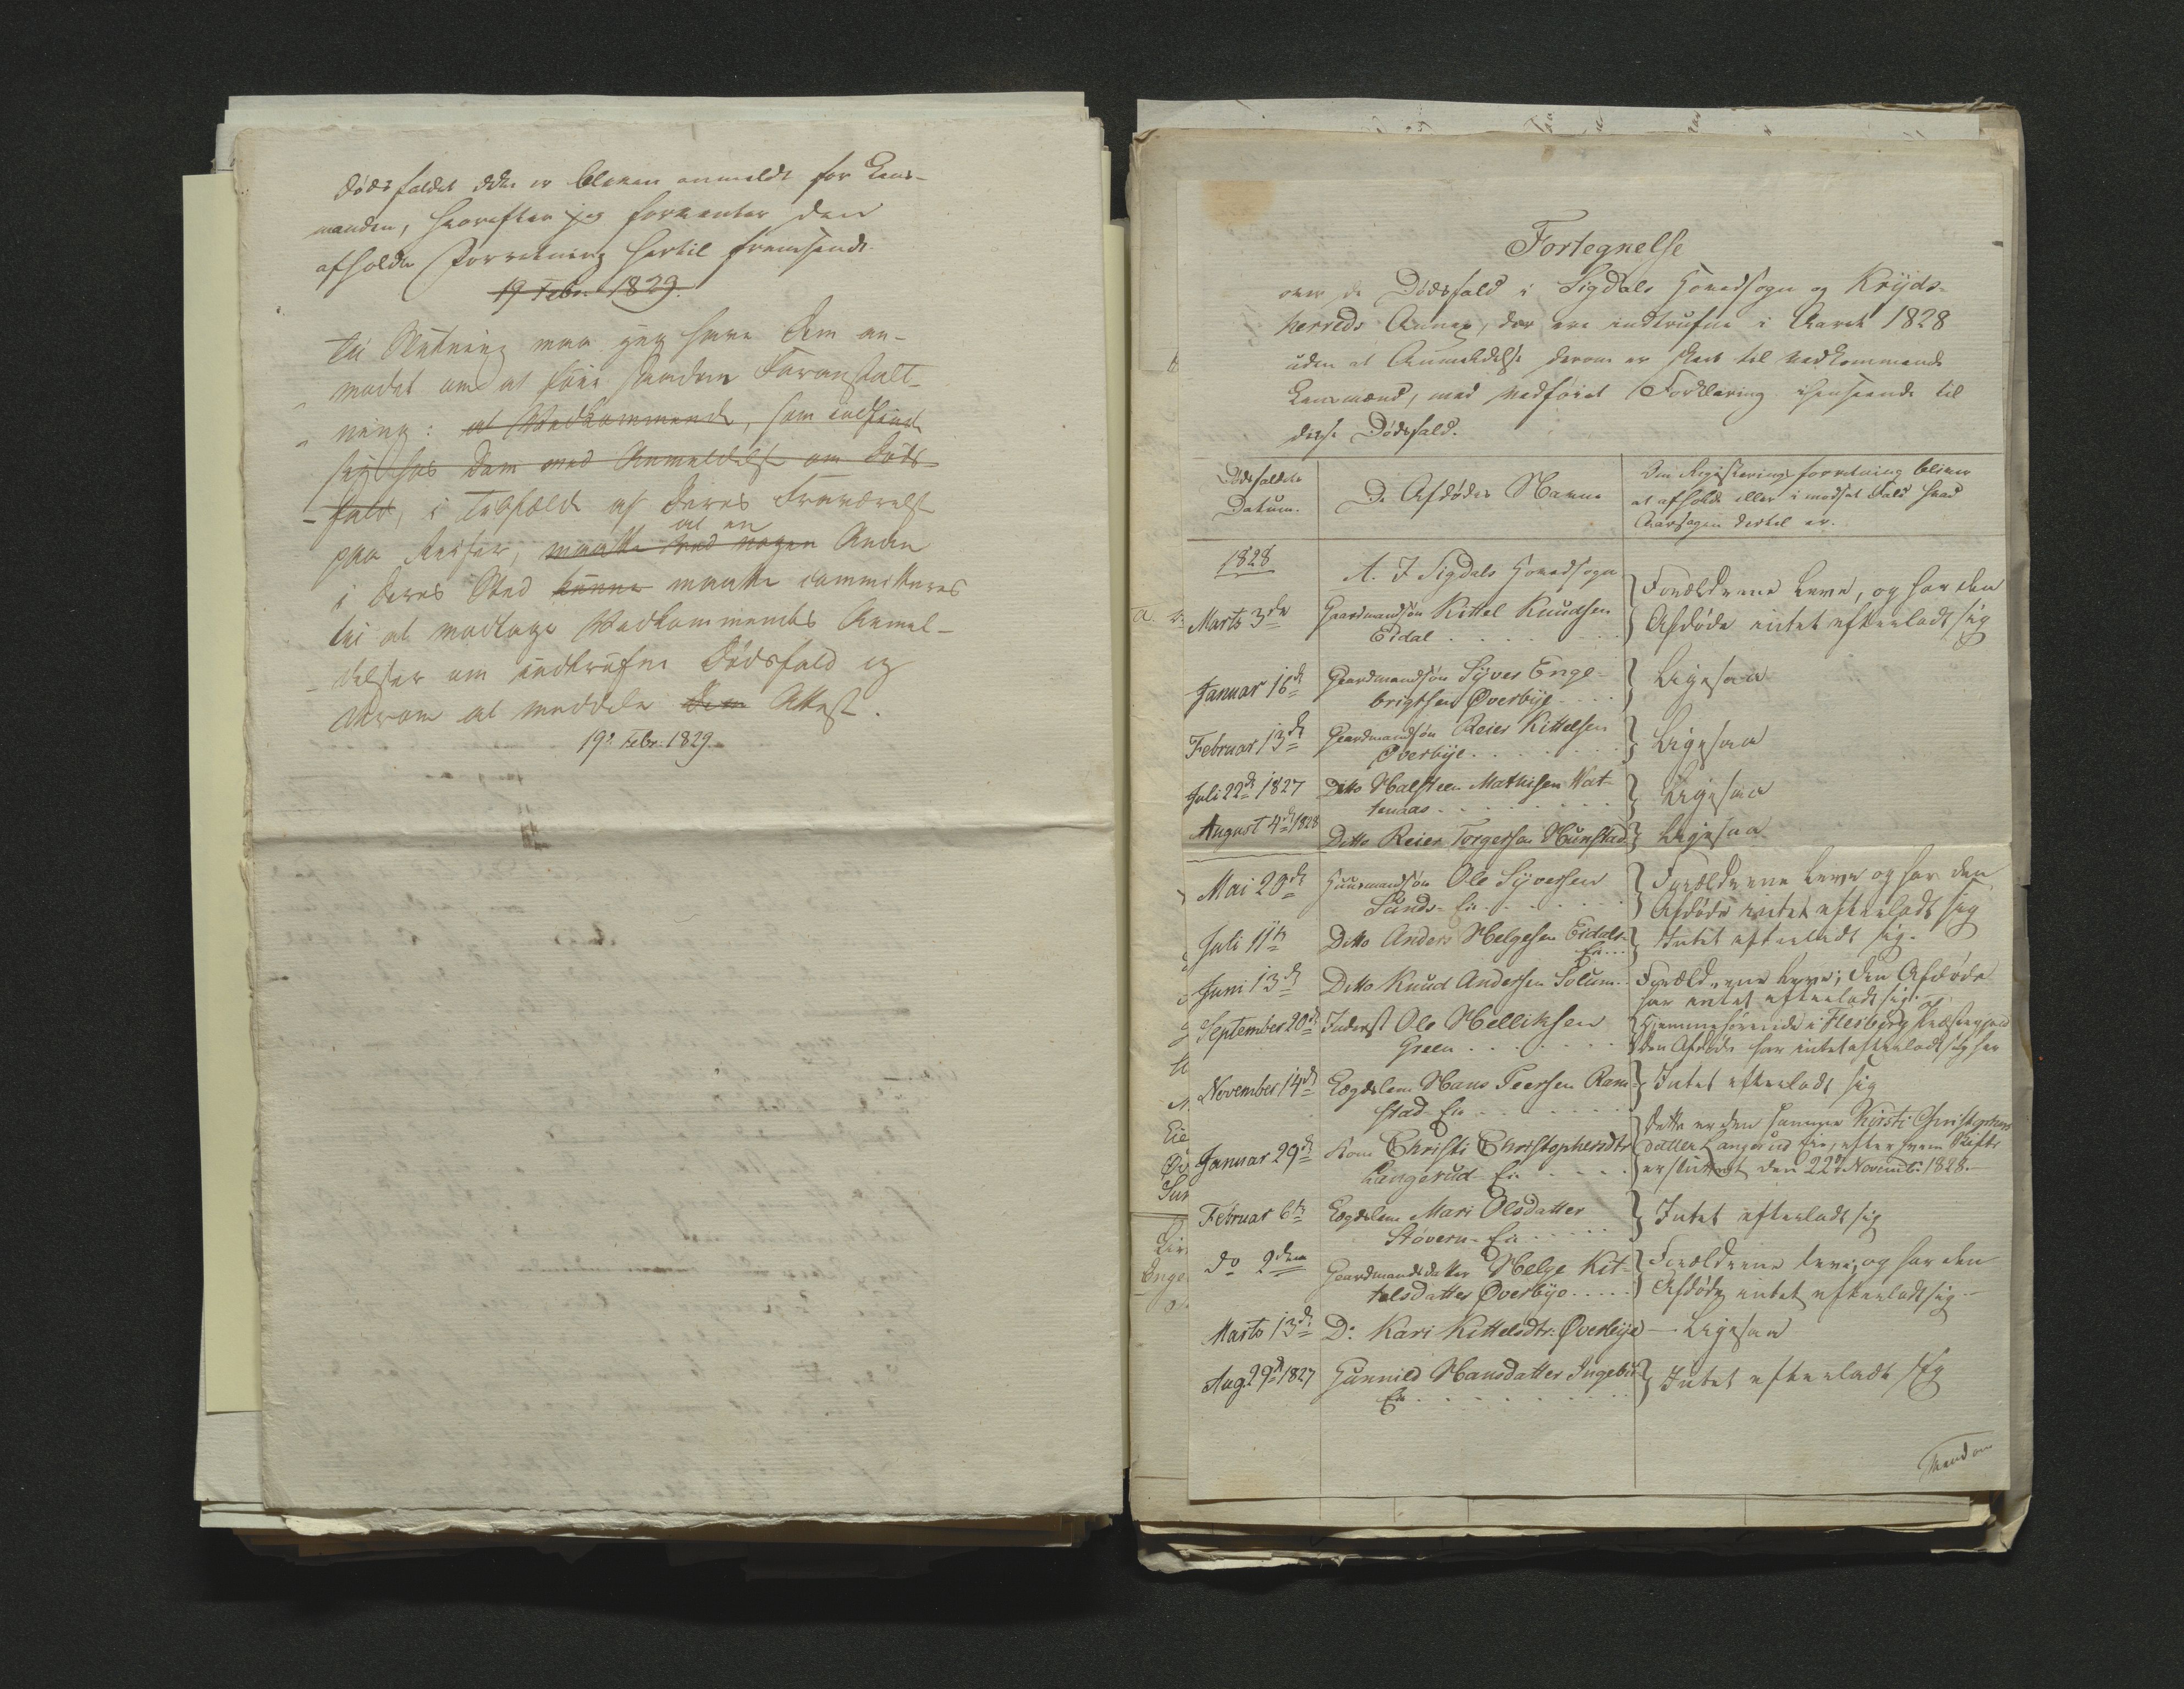 Dødsfaldet ikke er bleven anmeldt for Lens-
manden, hvorefter jeg forventer den
afholdte Forretning hertil fremsendt.
19 Febr. 1829.
Til Slutning maa jeg have Dem an-
modet om at føie saadan Foranstalt-
ning: at Vedkommende, som indfinde
sig hos Dem med Anmeldelse om Døds-
fald, i Tilfælde af Deres Fraværelse
at en
paa Reiser, maatte med nogen Anden
i Deres Sted kunne maatte committeres
til at modtage Vedkommendes Anmel-
delser om indtrufne Dødsfald og
derom at meddele dem Attest.
19d. Febr. 1829.
Fortegnelse
over de Dødsfald i Sigdals Hovedsogn og Krýds-
herreds Annex, der ere indtrufne i Aaret 1828
uden at Anmeldelse derom er skeet til vedkommende
Lensmænd, med vedføiet Forklaring henseende til
disse Dødsfald.
Dødsfaldets
Datum.
De Afdødes Navne
Om Registreringsforretning bliver
at afholde eller i modsat Fald hvad
Aarsagen dertil er.
1828
A. I Sigdals Hovedsogn
Marts 3de
Gaardmandsøn Kittel Knudsen
Eidal
Forældrene leve, og har den
Afdøde intet efterladt sig
Januar 16de
Gaardmandsøn Syver Enge-
brigtsen Øverbye
Ligesaa
Februar 13de
Gaardmandsøn Reier Kittelsen
Øverbye
Ligesaa
Juli 22de 1827
Ditto Halsteen Mathisen Vat-
tenaas
Ligesaa
August 4de 1828
Ditto Reier Torgersen Hunstad
Ligesaa
Mai 20de
Huusmandsøn Ole Syversen
Sunds-Eie
Forældrene leve og har den
Afdøde intet efterladt sig
Juli 11te
Ditto Anders Helgesen Eidals-
Eie
Intet efterladt sig.
Juni 13de
Ditto Knud Andersen Solum
Forældrene leve; den Afdøde
har intet efterladt sig.
September 20de
Inderst Ole Helliksen
Green
Hjemmehørende i Flesberg Præstegjeld og
den Afdøde har intet efterladt sig her
November 14de
Lægdslem Hans Peersen Ram-
stad-Eie
Intet efterladt sig
Januar 29de
Kone Christi Christophersdtr
Langerud-Eie
Dette er den samme Kirsti Christophers
datter Langerud Eie, efter hvem Skifte
er sluttet den 22de Novemb. 1828.
Februar 6te
Lægdslem Mari Olsdatter
Støvern-Eie
Intet efterladt sig
Do 9den
Gaardmandsdatter Helge Kit-
telsdatter Øverbye
Forældrene leve, og har den
Afdøde intet efterladt sig.
Marts 13de
Do Kari Kittelsdtr: Øverbye
Ligesaa
Aug. 29de 1827
Gunnild Hansdatter Ingebu
Eie
Intet efterladt sig